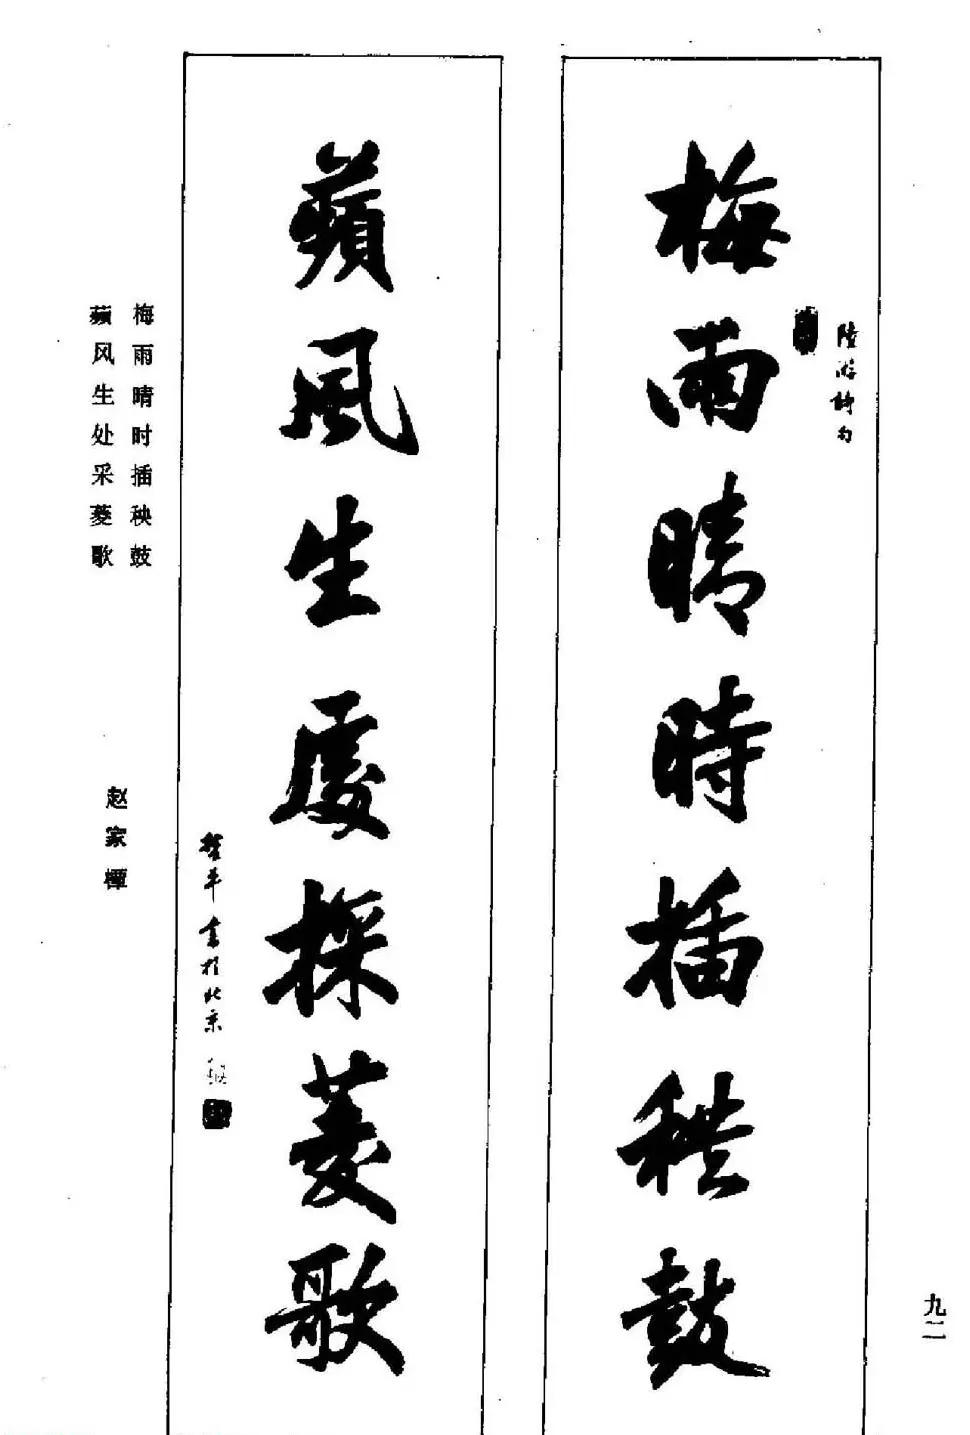 梅雨晴時插秧鼓
陸游詩句
蘋風生處採菱歌
書於北京
梅雨晴时插秧鼓
蘋风生处采菱歌
赵家橝
九二